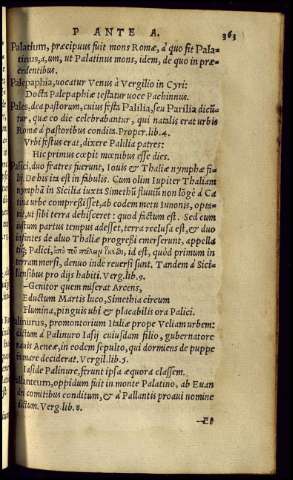 P ANTE A. 363
Palatium, præcipuus fuit mons Romæ, à quo fit Pala-
tinus, a, um, ut Palatinus mons, idem, de quo in præ-
cedentibus.
Palepaphia, uocatur Venus à Vergilio in Cyri:
Docta Palepaphiæ testatur uoce Pachinnus.
Pales, dea pastorum, cuius festa Palilia, seu Parilia dicũ-
tur, quæ eo die celebrabantur, qui natalis erat urbis
Romæ à pastoribus condita. Proper. lib. 4.
Vrbi festus erat, dixere Palilia patres:
Hic primus cœpit mœnibus esse dies.
Palici, duo fratres fuerunt, Iouis & Thaliæ nymphæ fi-
lij. De his ita est in fabulis. Cum olim Iupiter Thaliam
nymphã in Sicilia iuxta Simethũ fluuiũ non lõgè à Ca
tina urbe compreßisset, ab eodem metu Iunonis, opta-
uit, ut sibi terra dehisceret: quod factum est. Sed cum
iustum partus tempus adesset, terra reclusa est, & duo
infantes de aluo Thaliæ progreßi emerserunt, appella
tiq; Palici, id est, quòd primum in
terram mersi, denuo inde reuersi sunt. Tandem à Sici-
liensibus pro dijs habiti. Verg. lib. 9.
—Genitor quem miserat Arcens,
Eductum Martis luco, Simethia circum
Flumina, pinguis ubi & placabilis ara Palici.
Palinurus, promontorium Italiæ prope Veliam urbem:
dictum à Palinuro Iasij cuiusdam filio, gubernatore
nauis Aeneæ, in eodem sepulto, qui dormiens de puppe
in mare deciderat. Vergil. lib. 5.
Iaside Palinure, ferunt ipsa æquora classem.
Pallanteum, oppidum fuit in monte Palatino, ab Euan
dri comitibus conditum, & à Pallantis proaui nomine
dictum. Verg. lib. 8.